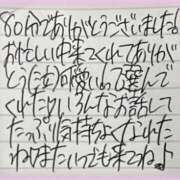 80分でありがとうございました!
お忙しい中来てくれてありが
とうたむが優しいの選んで
くれたりいろんなお話して
たっぷり気持ちよくなれた
ねりまたいつでも来てねっ♪